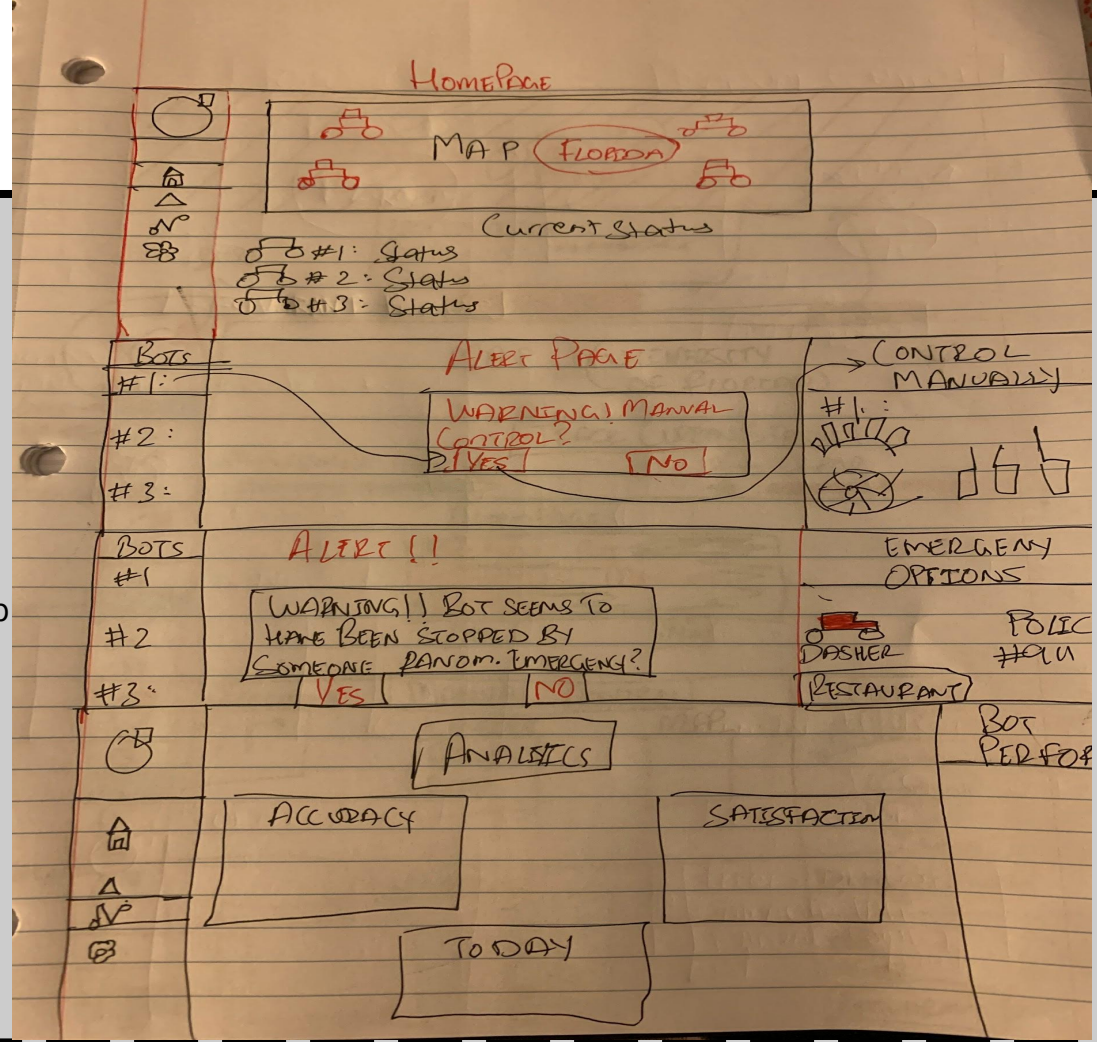 HOMEPAGE
MAP FLORIDA
Current Status
#1: Status
#2: Status
#3: Status
BOTS
#1:
#2:
#3:
ALERT PAGE
WARNING! MANUAL
CONTROL?
YES NO
CONTROL
MANUALLY
#1:
BOTS
#1
#2
#3:
ALERT!!
WARNING!! BOT SEEMS TO
HAVE BEEN STOPPED BY
SOMEONE RANOM. EMERGENCY?
YES NO
EMERGENY
OPTIONS
POLIC
DASHER #911
RESTAURANT
ANALYTICS
BOT
PERFOR
ACCURACY
SATISFACTION
TODAY